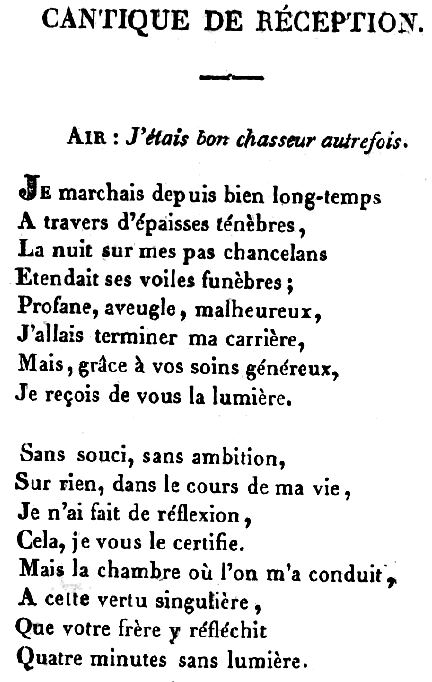 CANTIQUE DE RÉCEPTION.
AIR : J'étais bon chasseur autrefois.
JE marchais depuis bien long-temps
A travers d'épaisses ténèbres,
La nuit sur mes pas chancelans
Etendait ses voiles funèbres ;
Profane, aveugle, malheureux,
J'allais terminer ma carrière,
Mais, grâce à vos soins généreux,
Je reçois de vous la lumière.
Sans souci, sans ambition,
Sur rien, dans le cours de ma vie,
Je n'ai fait de réflexion,
Cela, je vous le certifie.
Mais la chambre où l'on m'a conduit,
A cette vertu singulière,
Que votre frère y réfléchit
Quatre minutes sans lumière.